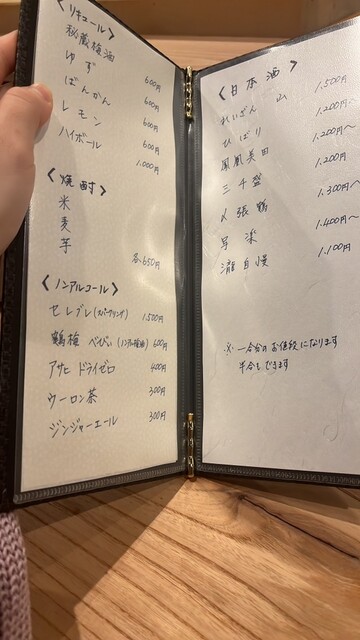 〈リキュール〉
秘蔵梅酒 600円
ゆず 600円
ばんかん 600円
レモン 600円
ハイボール 1,000円
〈焼酎〉
米
麦
芋 各650円
〈ノンアルコール〉
セレブレ(スパークリング) 1,500円
鶴梅 (ノンアル梅酒) 600円
アサヒ ドライゼロ 400円
ウーロン茶 300円
ジンジャーエール 300円
〈日本酒〉
れいざん 山 1,500円
ひばり 1,200円〜
鳳凰美田 1,200円〜
三千盛 1,200円
〆張鶴 1,300円〜
早楽 1,400円〜
瀧自慢 1,100円
※一合分のお値段になります
半分もできます